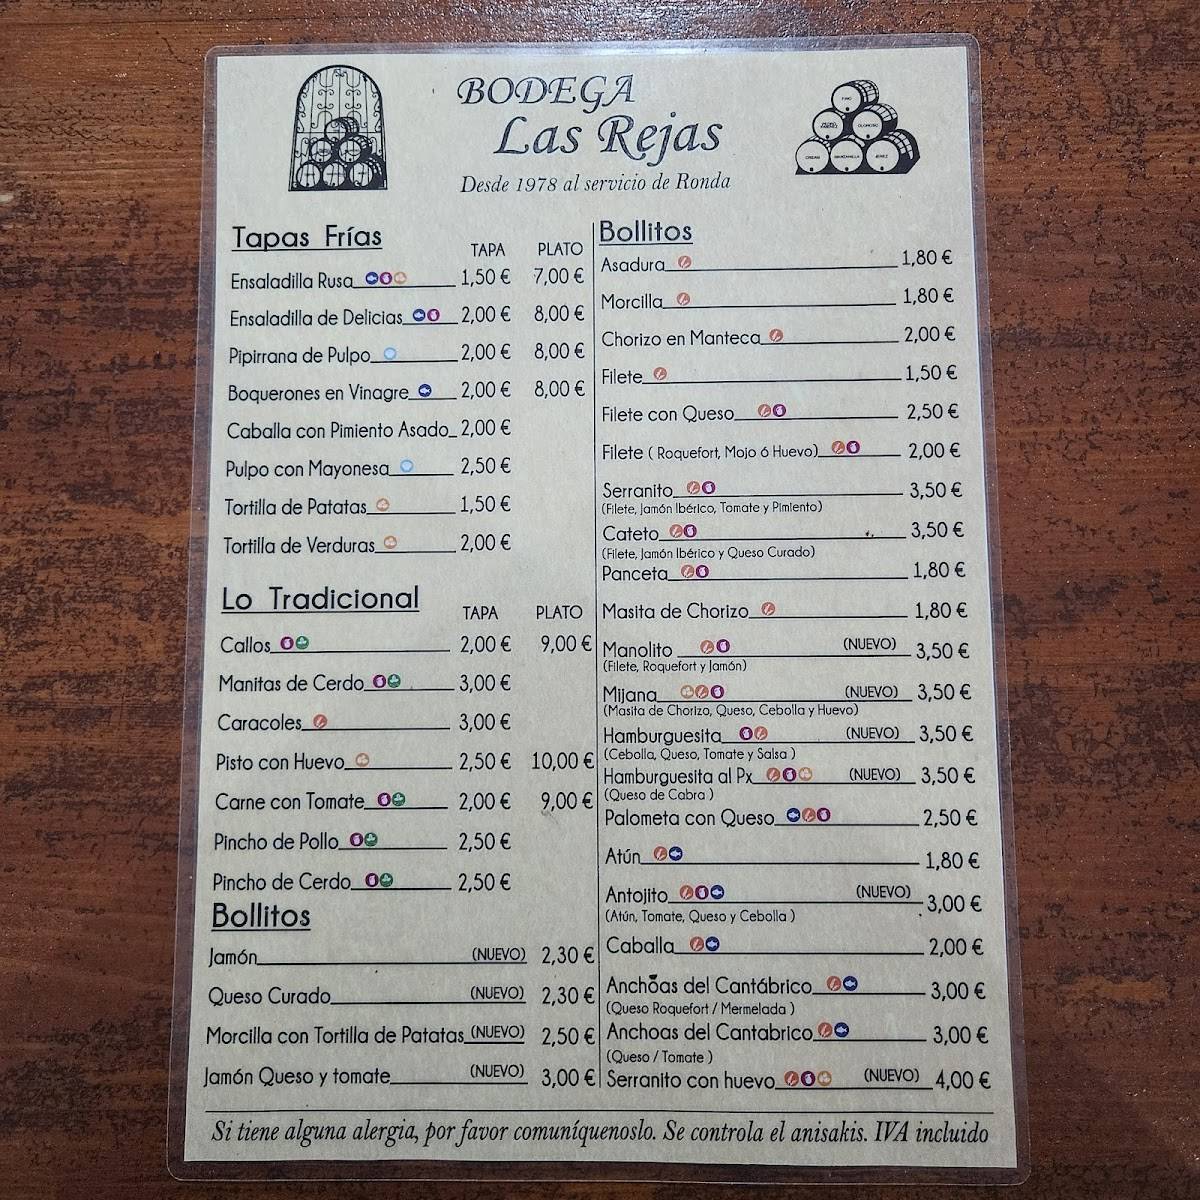 BODEGA
Las Rejas
Desde 1978 al servicio de Ronda
FINO
PEDRO XIMENEZ OLOROSO
CREAM MANZANILLA JEREZ
Tapas Frías TAPA PLATO
Ensaladilla Rusa 1,50 € 7,00 €
Ensaladilla de Delicias 2,00 € 8,00 €
Pipirrana de Pulpo 2,00 € 8,00 €
Boquerones en Vinagre 2,00 € 8,00 €
Caballa con Pimiento Asado 2,00 €
Pulpo con Mayonesa 2,50 €
Tortilla de Patatas 1,50 €
Tortilla de Verduras 2,00 €
Lo Tradicional TAPA PLATO
Callos 2,00 € 9,00 €
Manitas de Cerdo 3,00 €
Caracoles 3,00 €
Pisto con Huevo 2,50 € 10,00 €
Carne con Tomate 2,00 € 9,00 €
Pincho de Pollo 2,50 €
Pincho de Cerdo 2,50 €
Bollitos
Jamón (NUEVO) 2,30 €
Queso Curado (NUEVO) 2,30 €
Morcilla con Tortilla de Patatas (NUEVO) 2,50 €
Jamón Queso y tomate (NUEVO) 3,00 €
Bollitos
Asadura 1,80 €
Morcilla 1,80 €
Chorizo en Manteca 2,00 €
Filete 1,50 €
Filete con Queso 2,50 €
Filete ( Roquefort, Mojo ó Huevo) 2,00 €
Serranito 3,50 €
(Filete, Jamón Ibérico, Tomate y Pimiento)
Cateto 3,50 €
(Filete, Jamón Ibérico y Queso Curado)
Panceta 1,80 €
Masita de Chorizo 1,80 €
Manolito (NUEVO) 3,50 €
(Filete, Roquefort y Jamón)
Mijana (NUEVO) 3,50 €
(Masita de Chorizo, Queso, Cebolla y Huevo)
Hamburguesita (NUEVO) 3,50 €
(Cebolla, Queso, Tomate y Salsa )
Hamburguesita al Px (NUEVO) 3,50 €
(Queso de Cabra )
Palometa con Queso 2,50 €
Atún 1,80 €
Antojito (NUEVO) 3,00 €
(Atún, Tomate, Queso y Cebolla )
Caballa 2,00 €
Anchoas del Cantábrico 3,00 €
(Queso Roquefort / Mermelada )
Anchoas del Cantabrico 3,00 €
(Queso / Tomate )
Serranito con huevo (NUEVO) 4,00 €
Si tiene alguna alergia, por favor comuníquenoslo. Se controla el anisakis. IVA incluido